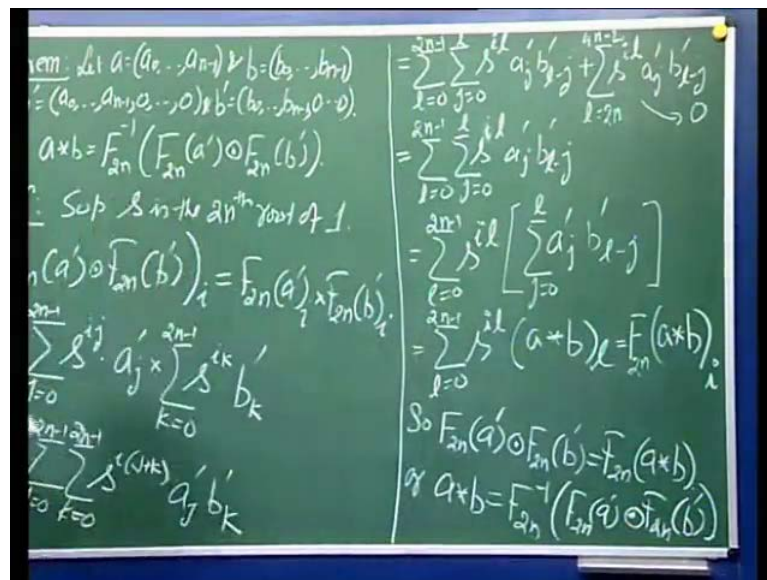 em: Let a=(a₀,..,aₙ₋₁) & b=(b₀,..,bₙ₋₁)
'=(a₀,..,aₙ₋₁,0,..,0) & b'=(b₀,..,bₙ₋₁,0..0).
a*b=F₂ₙ⁻¹(F₂ₙ(a')⊙F₂ₙ(b')).
: Sup s is the 2nᵗʰ root of 1.
(a')⊙F₂ₙ(b'))ᵢ=F₂ₙ(a')ᵢ×F₂ₙ(b')ᵢ.
∑_{j=0}^{2n-1} s^{ij} a'_j × ∑_{k=0}^{2n-1} s^{ik} b'_k
∑_{j=0}^{2n-1} ∑_{k=0}^{2n-1} s^{i(j+k)} a'_j b'_k
=∑_{l=0}^{2n-1} ∑_{j=0}^{l} s^{il} a'_j b'_{l-j} + ∑_{l=2n}^{4n-2} s^{il} a'_j b'_{l-j} → 0
=∑_{l=0}^{2n-1} ∑_{j=0}^{l} s^{il} a'_j b'_{l-j}
=∑_{l=0}^{2n-1} s^{il} [∑_{j=0}^{l} a'_j b'_{l-j}]
=∑_{l=0}^{2n-1} s^{il} (a*b)_l=F₂ₙ(a*b)ᵢ
So F₂ₙ(a')⊙F₂ₙ(b')=F₂ₙ(a*b)
or a*b=F₂ₙ⁻¹(F₂ₙ(a')⊙F₂ₙ(b'))